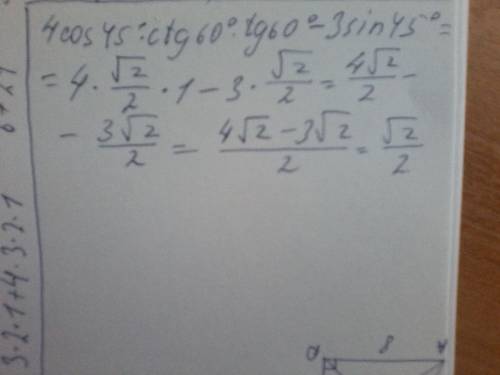 4cos45°·ctg60°·tg60°-3sin45°=
= 4·√2/2·1-3·√2/2=4√2/2-
- 3√2/2 = (4√2-3√2)/2 = √2/2
3·2·1+4·3·2·1
8